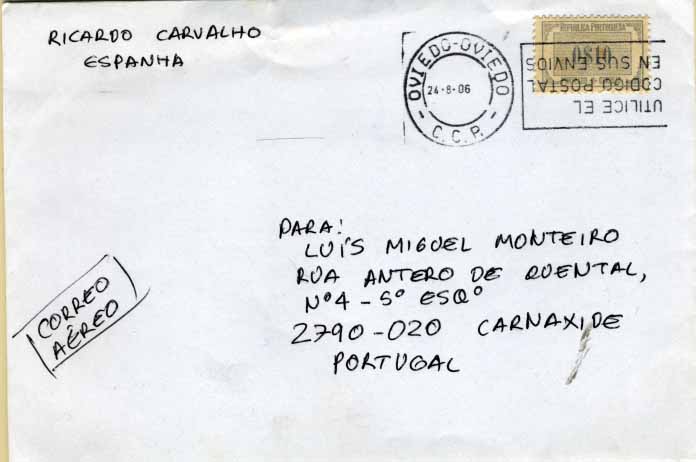 RICARDO CARVALHO
ESPANHA
OVIEDO-OVIEDO
24-8-06
- C.C.P. -
REPUBLICA PORTUGUESA
0$10
UTILICE EL
CODIGO POSTAL
EN SUS ENVIOS
PARA:
LUÍS MIGUEL MONTEIRO
RUA ANTERO DE QUENTAL,
Nº4 - 5º ESQº
2790-020 CARNAXIDE
PORTUGAL
CORREO
AÉREO